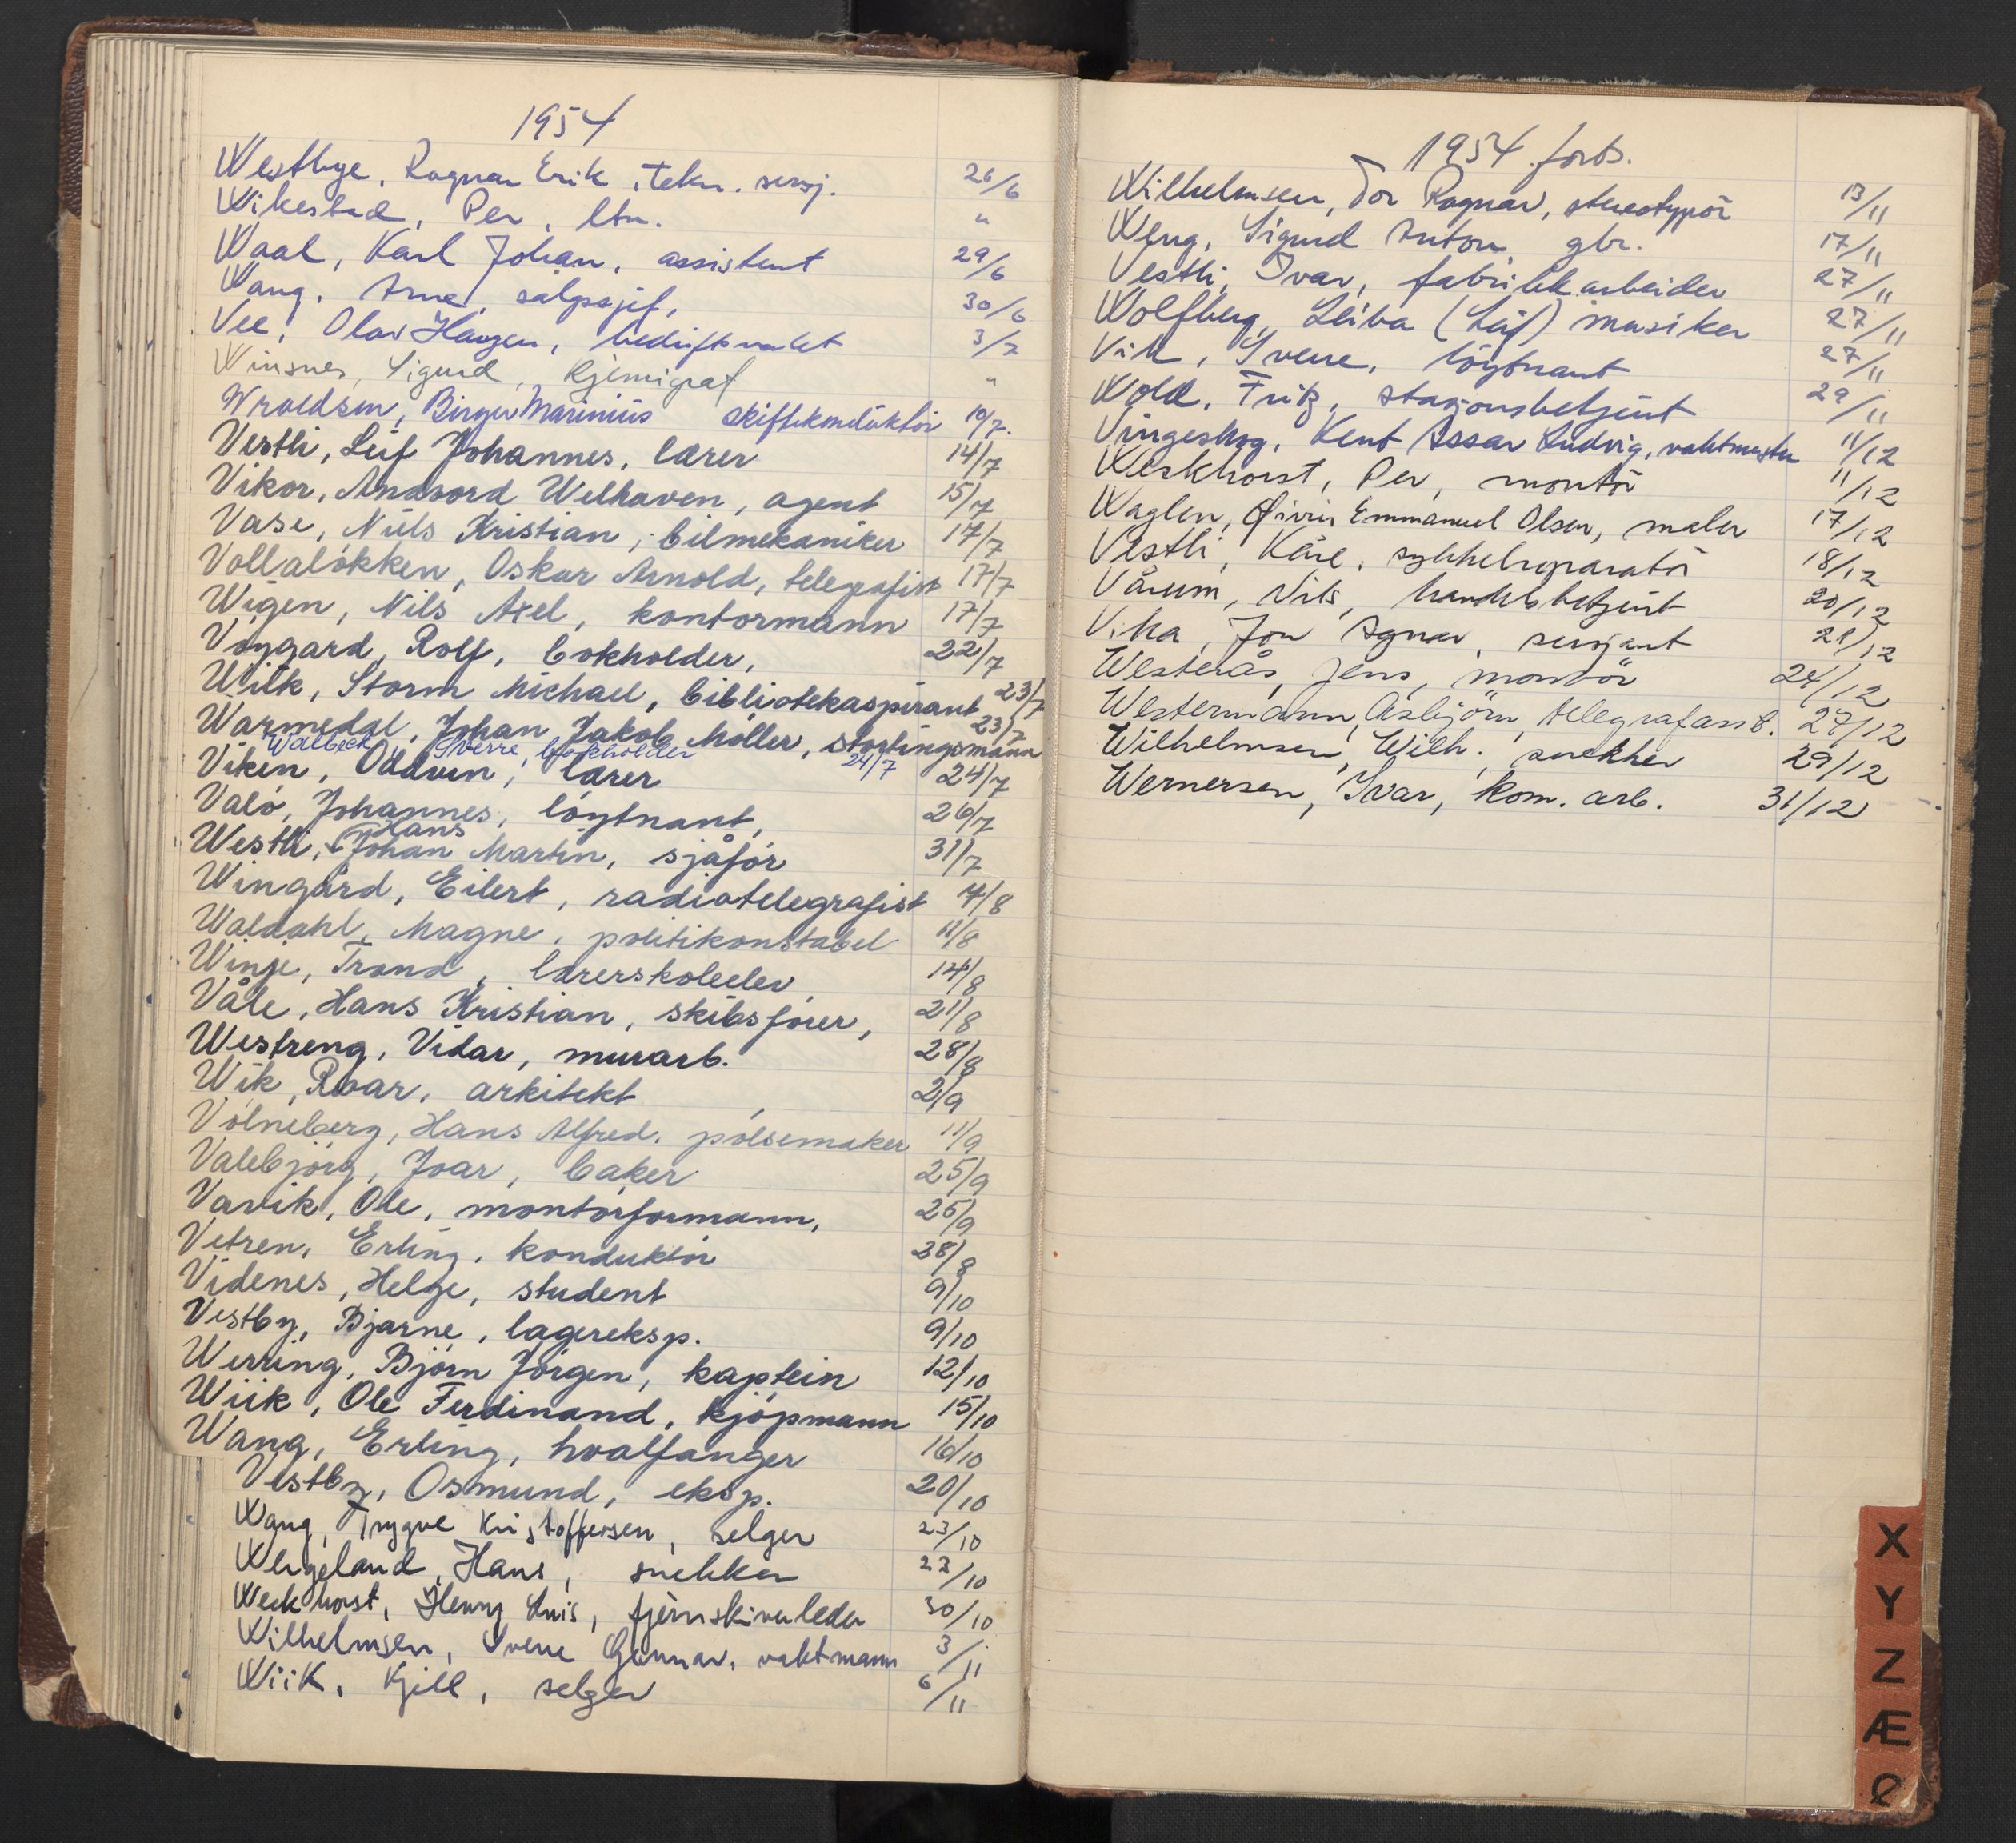 1954
Westbye, Ragnar Erik, tekn. sersj. 26/6
Wikestad, Per, ltn. "
Waal, Karl Johan, assistent 29/6
Wang, Arne, salgssjef, 30/6
Vee, Olav Haugen, bedriftsvakt 3/7
Winsnes, Sigurd, Kjemigraf "
Wroldsen, Birger Marinius skiftekonduktör 10/7.
Vestli, Leif Johannes, lærer 14/7
Vikor, Andvord Welhaven, agent 15/7
Vase, Niels Kristian, bilmekaniker 17/7
Vollalökken, Oskar Arnold, telegrafist 17/7
Wigen, Nils Axel, kontormann 17/7
Vöygard, Rolf, bokholder, 22/7
Wiik, Storm Michael, bibliotekaspirant 23/7
Warmedal, Johan Jakob Möller, stortingsmann 23/7
Walbeck, Sverre, bokholder 24/7
Viken, Oddvin, lærer 24/7
Valö, Johannes, löytnant, 26/7
Hans
Westli, Johan Martin, sjåför 31/7
Wingård, Eilert, radiotelegrafist 7/8
Waldahl, Magne, politikonstabel 11/8
Winje, Trond, lærerskoleelev 14/8
Våle, Hans Kristian, skibsförer, 21/8
Westreng, Vidar, murarb. 28/8
Wik, Roar, arkitekt 2/9
Völneberg, Hans Alfred, pölsemaker 11/9
Valebjörg, Joar, baker 25/9
Varvik, Ole, montörformann, 25/9
Vetren, Erling, konduktör 28/8
Videnes, Helge, student 9/10
Vestby, Bjarne, lagereksp. 9/10
Werring, Björn Jörgen, kaptein 12/10
Wiik, Ole Ferdinand, kjöpmann 15/10
Wang, Erling, hvalfanger 16/10
Vestby, Osmund, eksp. 20/10
Wang, Trygve Kristoffersen, selger 23/10
Wergeland, Hans, snekker 23/10
Werkhorst, Henny Luis, fjernskriverleder 30/10
Wilhelmsen, Sverre Gunnar, vaktmann 3/11
Wiik, Kjell, selger 6/11
1954 forts.
Wilhelmsen, Tor Ragnar, stereotypör 13/11
Weng, Sigurd Anton, gbr. 17/11
Vestli, Ivar, fabrikkarbeider 27/11
Wolfberg, Leiba (Leif) musiker 27/11
Vik, Sverre, löytnant 27/11
Wold, Fritz, stasjonsbetjent 29/11
Vingeskog, Kent Assar Ludvig, vaktmester 11/12
Werkhorst, Per, montör 11/12
Waglen, Øivin Emmanuel Olsen, maler 17/12
Vestli, Kåre, sykkelreparatör 18/12
Vårum, Nils, handelsbetjent 20/12
Vika, Jon Agnar, sersjant 21/12
Westerås, Jens, montör 24/12
Westermann, Asbjörn, telegrafass. 27/12
Wilhelmsen, Wilh., snekker 29/12
Wernersen, Ivar, kom. arb. 31/12
X
Y
Z
Æ
Ø